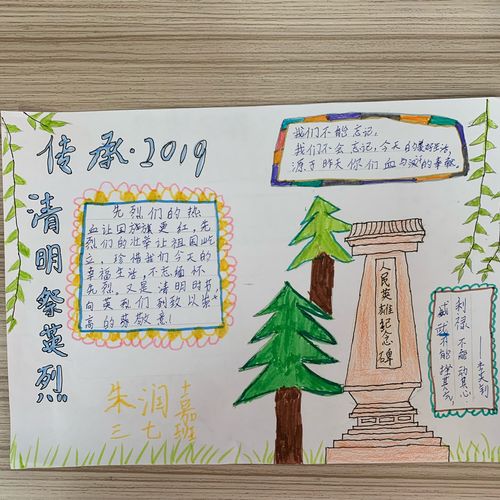 传承·2019
清明祭英烈
先烈们的热
血让国旗更红,先
烈们的壮举让祖国屹
立,珍惜我们今天的
幸福生活,不忘缅怀
先烈。又是清明时节,
向英烈们致以崇
高的敬意!
我们不能忘记,
我们不会忘记,今天的美好生活,
源于昨天你们血与汗的奉献。
人民英雄纪念碑
利禄不能动其心
威武不能挫其气
朱润嘉
三七班